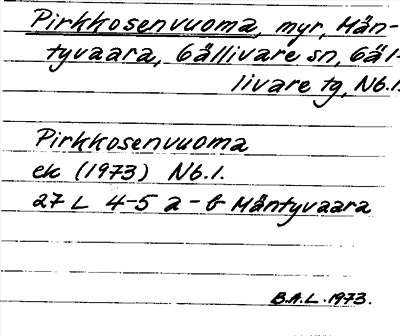 Pirkkosenvuoma, myr, Män-
tyvaara, Gällivare sn, Gäl-
livare tg, Nb.l.
Pirkkosenvuoma
ek (1973) Nb.l.
27 L 4-5 a-b Mäntyvaara
B.A.L. 1973.